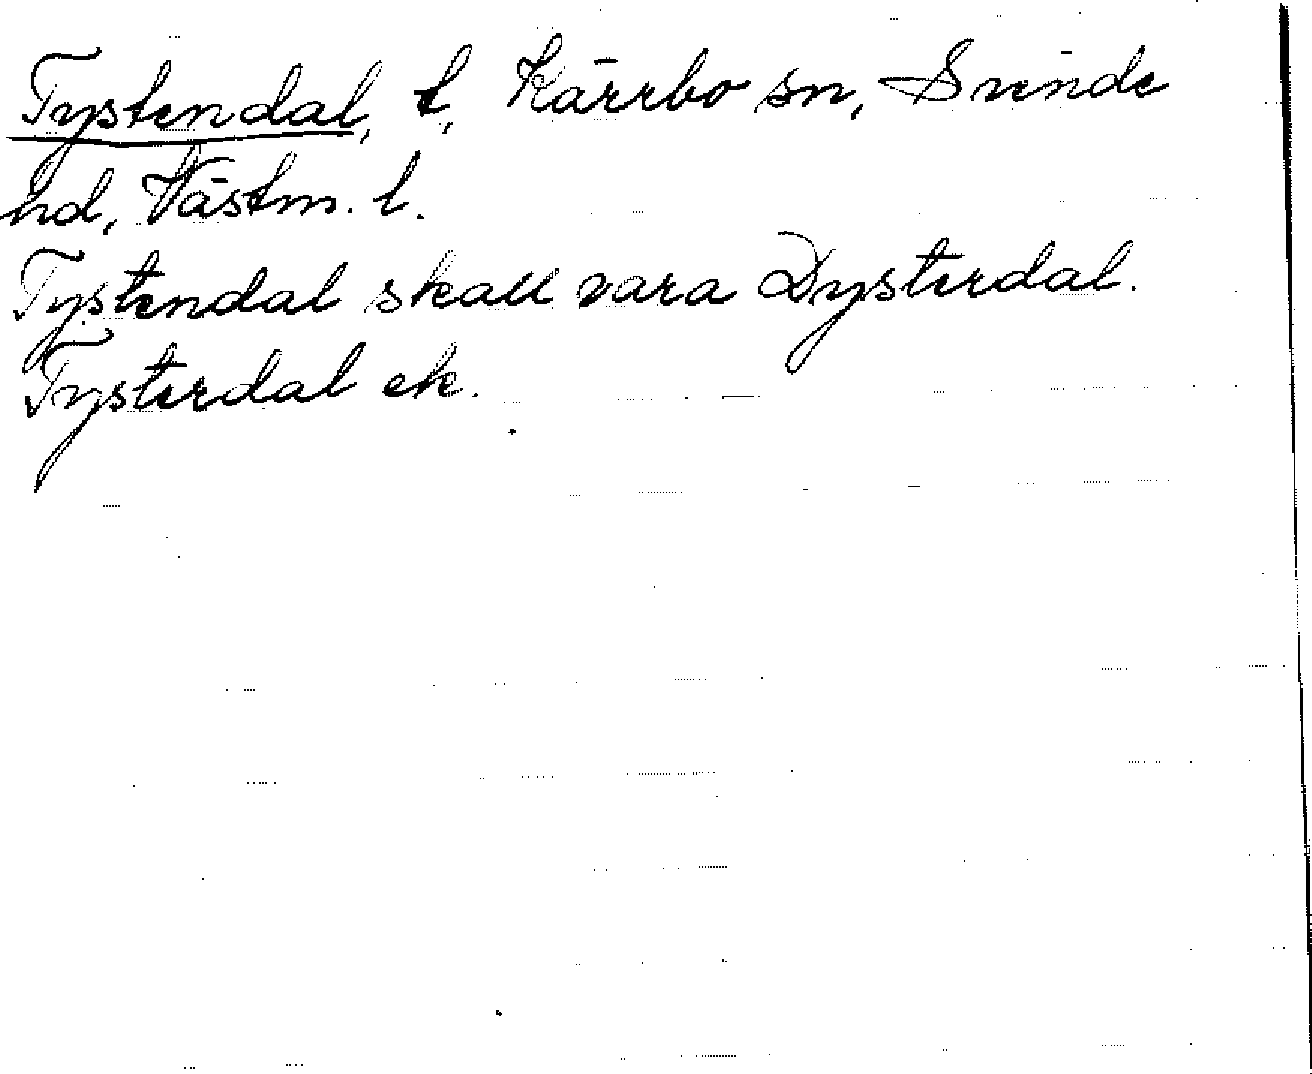 Tystendal, t, Kärrbo sn, Siende
hd, Västm. l.
Tystendal skall vara Dysterdal.
Tysterdal ek.